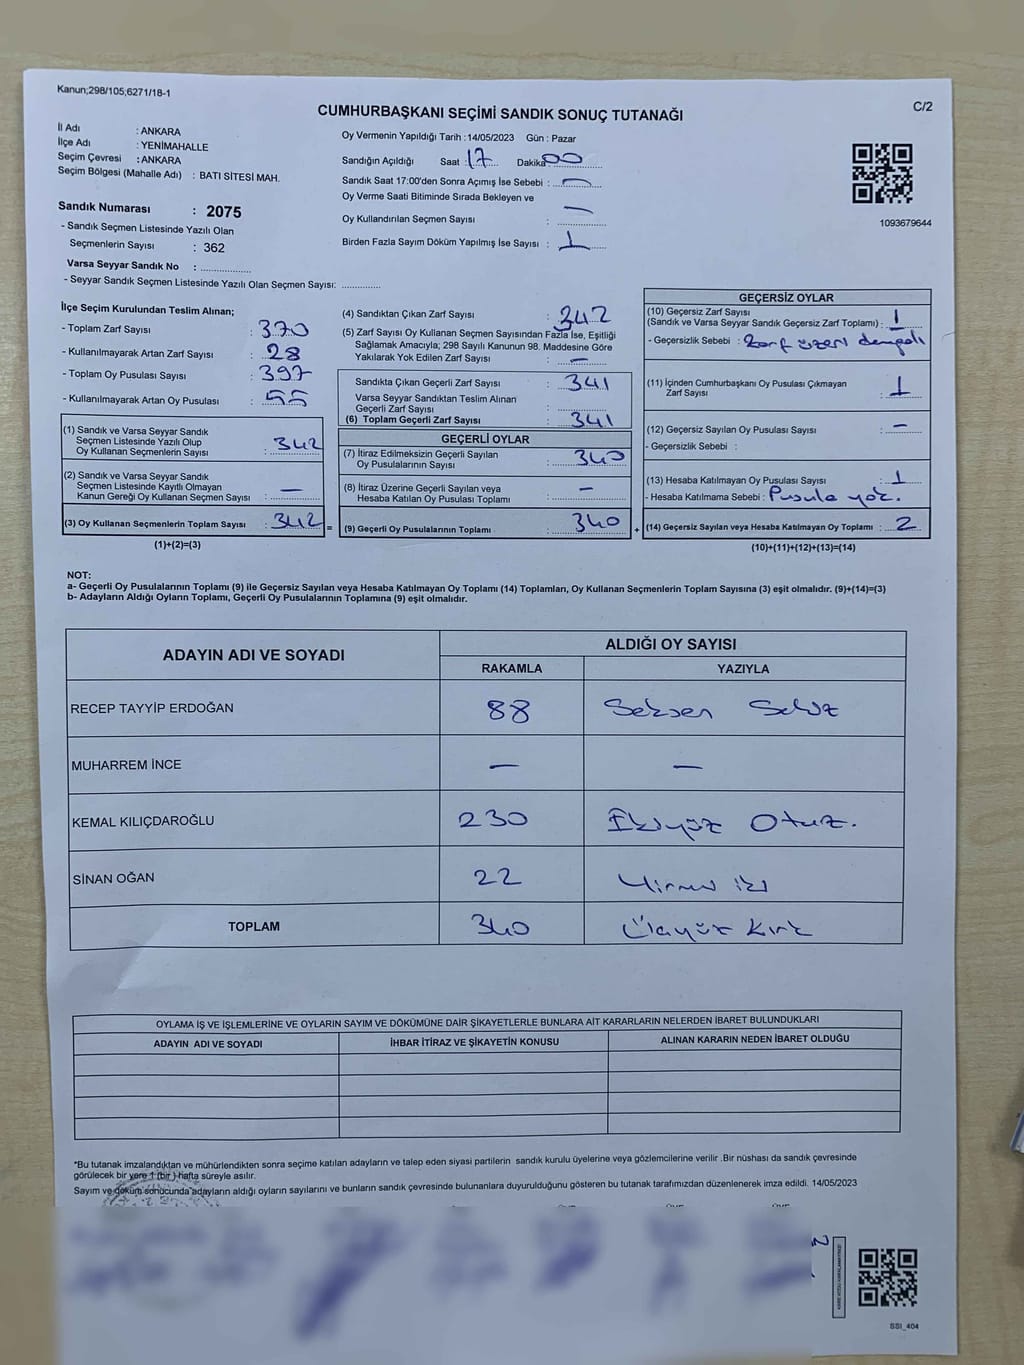 Kanun;298/105;6271/18-1
C/2
CUMHURBAŞKANI SEÇİMİ SANDIK SONUÇ TUTANAĞI
İl Adı : ANKARA
İlçe Adı : YENİMAHALLE
Seçim Çevresi : ANKARA
Seçim Bölgesi (Mahalle Adı) : BATI SİTESİ MAH.
Sandık Numarası : 2075
- Sandık Seçmen Listesinde Yazılı Olan
Seçmenlerin Sayısı : 362
Varsa Seyyar Sandık No : ..................
- Seyyar Sandık Seçmen Listesinde Yazılı Olan Seçmen Sayısı: ..............
Oy Vermenin Yapıldığı Tarih :14/05/2023 Gün : Pazar
Sandığın Açıldığı Saat : 17 Dakika 00
Sandık Saat 17:00'den Sonra Açımış İse Sebebi : —
Oy Verme Saati Bitiminde Sırada Bekleyen ve
Oy Kullandırılan Seçmen Sayısı : —
Birden Fazla Sayım Döküm Yapılmış İse Sayısı : 1
1093679644
İlçe Seçim Kurulundan Teslim Alınan;
- Toplam Zarf Sayısı : 370
- Kullanılmayarak Artan Zarf Sayısı : 28
- Toplam Oy Pusulası Sayısı : 397
- Kullanılmayarak Artan Oy Pusulası : 55
(1) Sandık ve Varsa Seyyar Sandık
Seçmen Listesinde Yazılı Olup
Oy Kullanan Seçmenlerin Sayısı : 342
(2) Sandık ve Varsa Seyyar Sandık
Seçmen Listesinde Kayıtlı Olmayan
Kanun Gereği Oy Kullanan Seçmen Sayısı : —
(3) Oy Kullanan Seçmenlerin Toplam Sayısı : 342
(1)+(2)=(3)
(4) Sandıktan Çıkan Zarf Sayısı : 342
(5) Zarf Sayısı Oy Kullanan Seçmen Sayısından Fazla İse, Eşitliği
Sağlamak Amacıyla; 298 Sayılı Kanunun 98. Maddesine Göre
Yakılarak Yok Edilen Zarf Sayısı : —
Sandıkta Çıkan Geçerli Zarf Sayısı : 341
Varsa Seyyar Sandıktan Teslim Alınan
Geçerli Zarf Sayısı :
(6) Toplam Geçerli Zarf Sayısı : 341
GEÇERLİ OYLAR
(7) İtiraz Edilmeksizin Geçerli Sayılan
Oy Pusulalarının Sayısı : 340
(8) İtiraz Üzerine Geçerli Sayılan veya
Hesaba Katılan Oy Pusulası Toplamı : —
= (9) Geçerli Oy Pusulalarının Toplamı : 340
GEÇERSİZ OYLAR
(10) Geçersiz Zarf Sayısı
(Sandık ve Varsa Seyyar Sandık Geçersiz Zarf Toplamı) : 1
- Geçersizlik Sebebi : Zarf üzeri damgalı
(11) İçinden Cumhurbaşkanı Oy Pusulası Çıkmayan
Zarf Sayısı : 1
(12) Geçersiz Sayılan Oy Pusulası Sayısı : —
- Geçersizlik Sebebi :
(13) Hesaba Katılmayan Oy Pusulası Sayısı : 1
- Hesaba Katılmama Sebebi : Pusula yok.
+ (14) Geçersiz Sayılan veya Hesaba Katılmayan Oy Toplamı : 2
(10)+(11)+(12)+(13)=(14)
NOT:
a- Geçerli Oy Pusulalarının Toplamı (9) ile Geçersiz Sayılan veya Hesaba Katılmayan Oy Toplamı (14) Toplamları, Oy Kullanan Seçmenlerin Toplam Sayısına (3) eşit olmalıdır. (9)+(14)=(3)
b- Adayların Aldığı Oyların Toplamı, Geçerli Oy Pusulalarının Toplamına (9) eşit olmalıdır.
ADAYIN ADI VE SOYADI
ALDIĞI OY SAYISI
RAKAMLA YAZIYLA
RECEP TAYYİP ERDOĞAN 88 Seksen Sekiz
MUHARREM İNCE — —
KEMAL KILIÇDAROĞLU 230 İkiyüz Otuz.
SİNAN OĞAN 22 Yirmi iki
TOPLAM 340 Üçyüz Kırk
OYLAMA İŞ VE İŞLEMLERİNE VE OYLARIN SAYIM VE DÖKÜMÜNE DAİR ŞİKAYETLERLE BUNLARA AİT KARARLARIN NELERDEN İBARET BULUNDUKLARI
ADAYIN ADI VE SOYADI İHBAR İTİRAZ VE ŞİKAYETİN KONUSU ALINAN KARARIN NEDEN İBARET OLDUĞU
*Bu tutanak imzalandıktan ve mühürlendikten sonra seçime katılan adayların ve talep eden siyasi partilerin sandık kurulu üyelerine veya gözlemcilerine verilir .Bir nüshası da sandık çevresinde
görülecek bir yere 1 (bir ) hafta süreyle asılır.
Sayım ve döküm sonucunda adayların aldığı oyların sayılarını ve bunların sandık çevresinde bulunanlara duyurulduğunu gösteren bu tutanak tarafımızdan düzenlenerek imza edildi. 14/05/2023
SSI_404